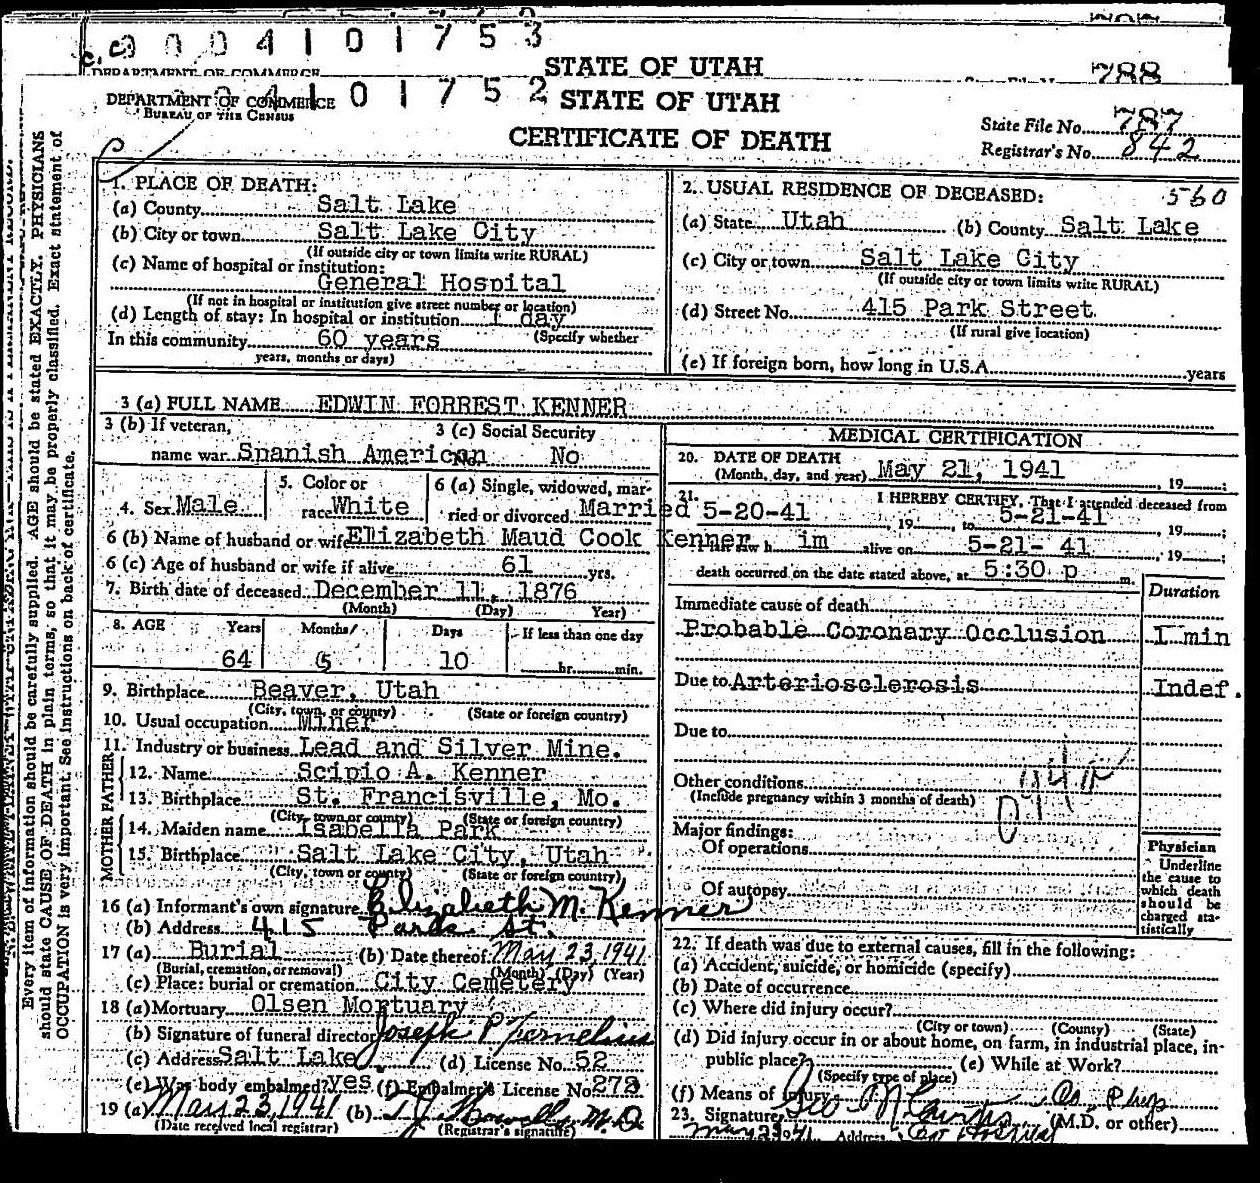 0 0 0 4 1 0 1 7 5 3
STATE OF UTAH
788
DEPARTMENT OF COMMERCE
0 4 1 0 1 7 5 2
STATE OF UTAH
DEPARTMENT OF COMMERCE
BUREAU OF THE CENSUS
CERTIFICATE OF DEATH
State File No. 787
Registrar's No. 842
Every item of information should be carefully supplied. AGE should be stated EXACTLY. PHYSICIANS
should state CAUSE OF DEATH in plain terms, so that it may be properly classified. Exact statement of
OCCUPATION is very important. See instructions on back of certificate.
1. PLACE OF DEATH:
(a) County Salt Lake
(b) City or town Salt Lake City
(If outside city or town limits write RURAL)
(c) Name of hospital or institution:
General Hospital
(If not in hospital or institution give street number or location)
(d) Length of stay: In hospital or institution 1 day
In this community 60 years (Specify whether
years, months or days)
2. USUAL RESIDENCE OF DECEASED: 560
(a) State Utah (b) County Salt Lake
(c) City or town Salt Lake City
(If outside city or town limits write RURAL)
(d) Street No. 415 Park Street
(If rural give location)
(e) If foreign born, how long in U.S.A. years
3 (a) FULL NAME EDWIN FORREST KENNER
3 (b) If veteran, 3 (c) Social Security
name war Spanish American No. No
4. Sex Male 5. Color or race White 6 (a) Single, widowed, married or divorced Married
6 (b) Name of husband or wife Elizabeth Maud Cook Kenner
6 (c) Age of husband or wife if alive 61 yrs.
7. Birth date of deceased December 11, 1876
(Month) (Day) Year)
8. AGE Years Months Days If less than one day
64 5 10 hr. min.
9. Birthplace Beaver, Utah
(City, town, or county) (State or foreign country)
10. Usual occupation Miner
11. Industry or business Lead and Silver Mine.
FATHER
12. Name Scipio A. Kenner
13. Birthplace St. Francisville, Mo.
(City, town or county) (State or foreign country)
MOTHER
14. Maiden name Isabella Park
15. Birthplace Salt Lake City, Utah
(City, town or county) (State or foreign country)
16 (a) Informant's own signature Elizabeth M. Kenner
(b) Address 415 Park St.
17 (a) Burial (b) Date thereof May 23, 1941
(Burial, cremation, or removal) (Month) (Day) (Year)
(c) Place: burial or cremation City Cemetery
18 (a) Mortuary Olsen Mortuary
(b) Signature of funeral director Joseph P.
(c) Address Salt Lake (d) License No. 52
(e) Was body embalmed? yes (f) Embalmer's License No. 272
19 (a) May 23, 1941 (b) M.D.
(Date received local registrar) (Registrar's signature)
MEDICAL CERTIFICATION
20. DATE OF DEATH
(Month, day, and year) May 21, 1941, 19 ;
21. I HEREBY CERTIFY, That I attended deceased from
5-20-41, 19 , to 5-21-41, 19 ;
im alive on 5-21- 41, 19 ;
death occurred on the date stated above, at 5:30 p m.
Duration
Immediate cause of death
Probable Coronary Occlusion 1 min
Due to Arteriosclerosis Indef.
Due to
Other conditions
(Include pregnancy within 3 months of death)
Major findings:
Of operations
Of autopsy
Physician
Underline
the cause to
which death
should be
charged sta-
tistically
22. If death was due to external causes, fill in the following:
(a) Accident, suicide, or homicide (specify)
(b) Date of occurrence
(c) Where did injury occur?
(City or town) (County) (State)
(d) Did injury occur in or about home, on farm, in industrial place, in-
public place? (e) While at Work?
(Specify type of place)
(f) Means of injury
23. Signature Co. Phys (M.D. or other)
Address